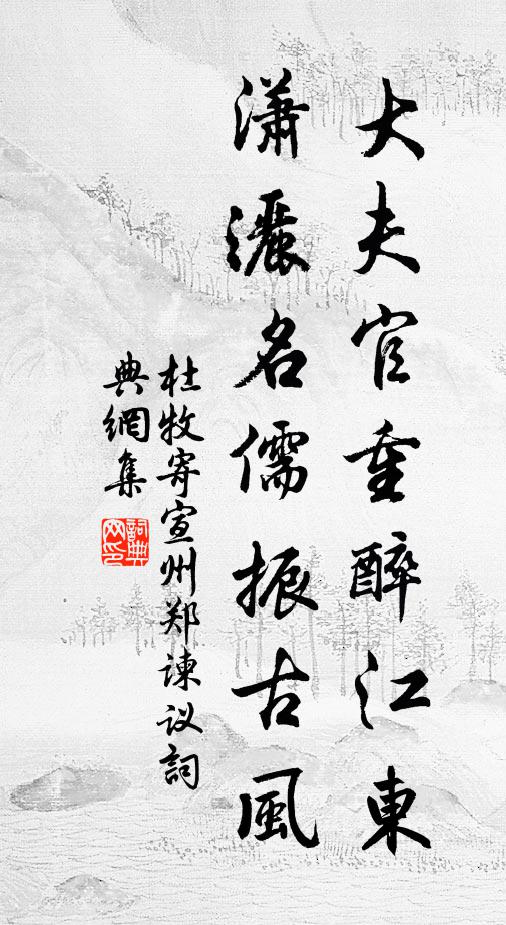 大夫官重醉江東
瀟灑名儒振古風
杜牧寄宣州郑諫议詞
典網集
詞典网印